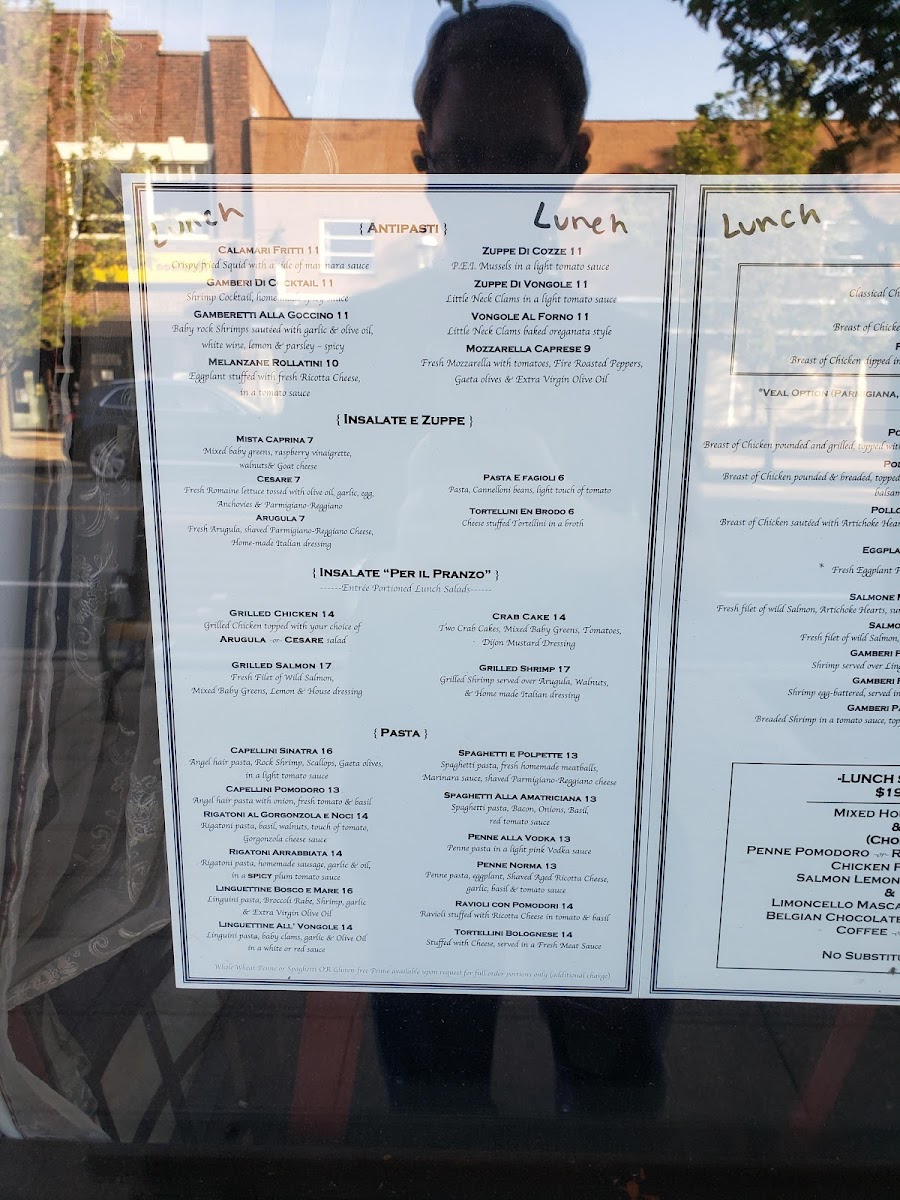 Lunch
Lunch
{ ANTIPASTI }
CALAMARI FRITTI 11
Crispy fried Squid with a side of marinara sauce
GAMBERI DI COCKTAIL 11
Shrimp Cocktail, home made spicy sauce
GAMBERETTI ALLA GOCCINO 11
Baby rock Shrimps sautéed with garlic & olive oil,
white wine, lemon & parsley – spicy
MELANZANE ROLLATINI 10
Eggplant stuffed with fresh Ricotta Cheese,
in a tomato sauce
ZUPPE DI COZZE 11
P.E.I. Mussels in a light tomato sauce
ZUPPE DI VONGOLE 11
Little Neck Clams in a light tomato sauce
VONGOLE AL FORNO 11
Little Neck Clams baked oreganata style
MOZZARELLA CAPRESE 9
Fresh Mozzarella with tomatoes, Fire Roasted Peppers,
Gaeta olives & Extra Virgin Olive Oil
{ INSALATE E ZUPPE }
MISTA CAPRINA 7
Mixed baby greens, raspberry vinaigrette,
walnuts& Goat cheese
CESARE 7
Fresh Romaine lettuce tossed with olive oil, garlic, egg,
Anchovies & Parmigiano-Reggiano
ARUGULA 7
Fresh Arugula, shaved Parmigiano-Reggiano Cheese,
Home-made Italian dressing
PASTA E FAGIOLI 6
Pasta, Cannelloni beans, light touch of tomato
TORTELLINI EN BRODO 6
Cheese stuffed Tortellini in a broth
{ INSALATE “PER IL PRANZO” }
------Entrée Portioned Lunch Salads------
GRILLED CHICKEN 14
Grilled Chicken topped with your choice of
ARUGULA -or- CESARE salad
GRILLED SALMON 17
Fresh Filet of Wild Salmon,
Mixed Baby Greens, Lemon & House dressing
CRAB CAKE 14
Two Crab Cakes, Mixed Baby Greens, Tomatoes,
Dijon Mustard Dressing
GRILLED SHRIMP 17
Grilled Shrimp served over Arugula, Walnuts,
& Home made Italian dressing
{ PASTA }
CAPELLINI SINATRA 16
Angel hair pasta, Rock Shrimp, Scallops, Gaeta olives,
in a light tomato sauce
CAPELLINI POMODORO 13
Angel hair pasta with onion, fresh tomato & basil
RIGATONI AL GORGONZOLA E NOCI 14
Rigatoni pasta, basil, walnuts, touch of tomato,
Gorgonzola cheese sauce
RIGATONI ARRABBIATA 14
Rigatoni pasta, homemade sausage, garlic & oil,
in a SPICY plum tomato sauce
LINGUETTINE BOSCO E MARE 16
Linguini pasta, Broccoli Rabe, Shrimp, garlic
& Extra Virgin Olive Oil
LINGUETTINE ALL' VONGOLE 14
Linguini pasta, baby clams, garlic & Olive Oil
in a white or red sauce
SPAGHETTI E POLPETTE 13
Spaghetti pasta, fresh homemade meatballs,
Marinara sauce, shaved Parmigiano-Reggiano cheese
SPAGHETTI ALLA AMATRICIANA 13
Spaghetti pasta, Bacon, Onions, Basil,
red tomato sauce
PENNE ALLA VODKA 13
Penne pasta in a light pink Vodka sauce
PENNE NORMA 13
Penne pasta, eggplant, Shaved Aged Ricotta Cheese,
garlic, basil & tomato sauce
RAVIOLI CON POMODORI 14
Ravioli stuffed with Ricotta Cheese in tomato & basil
TORTELLINI BOLOGNESE 14
Stuffed with Cheese, served in a Fresh Meat Sauce
Whole Wheat Penne or Spaghetti OR Gluten free Penne available upon request for full order portions only (additional charge)
Lunch
Classical Ch
Breast of Chicke
Breast of Chicken dipped in
*VEAL OPTION (PARMIGIANA,
Breast of Chicken pounded and grilled, topped wit
Breast of Chicken pounded & breaded, topped
balsam
POLLO
Breast of Chicken sautéed with Artichoke Hear
EGGPLA
* Fresh Eggplant
SALMONE
Fresh filet of wild Salmon, Artichoke Hearts, su
SALMO
Fresh filet of wild Salmon,
GAMBERI F
Shrimp served over Lin
GAMBERI
Shrimp egg-battered, served in
GAMBERI PA
Breaded Shrimp in a tomato sauce, top
-LUNCH
$19
MIXED HO
&
(CHO
PENNE POMODORO -or- R
CHICKEN F
SALMON LEMON
&
LIMONCELLO MASCA
BELGIAN CHOCOLATE
COFFEE
NO SUBSTITU